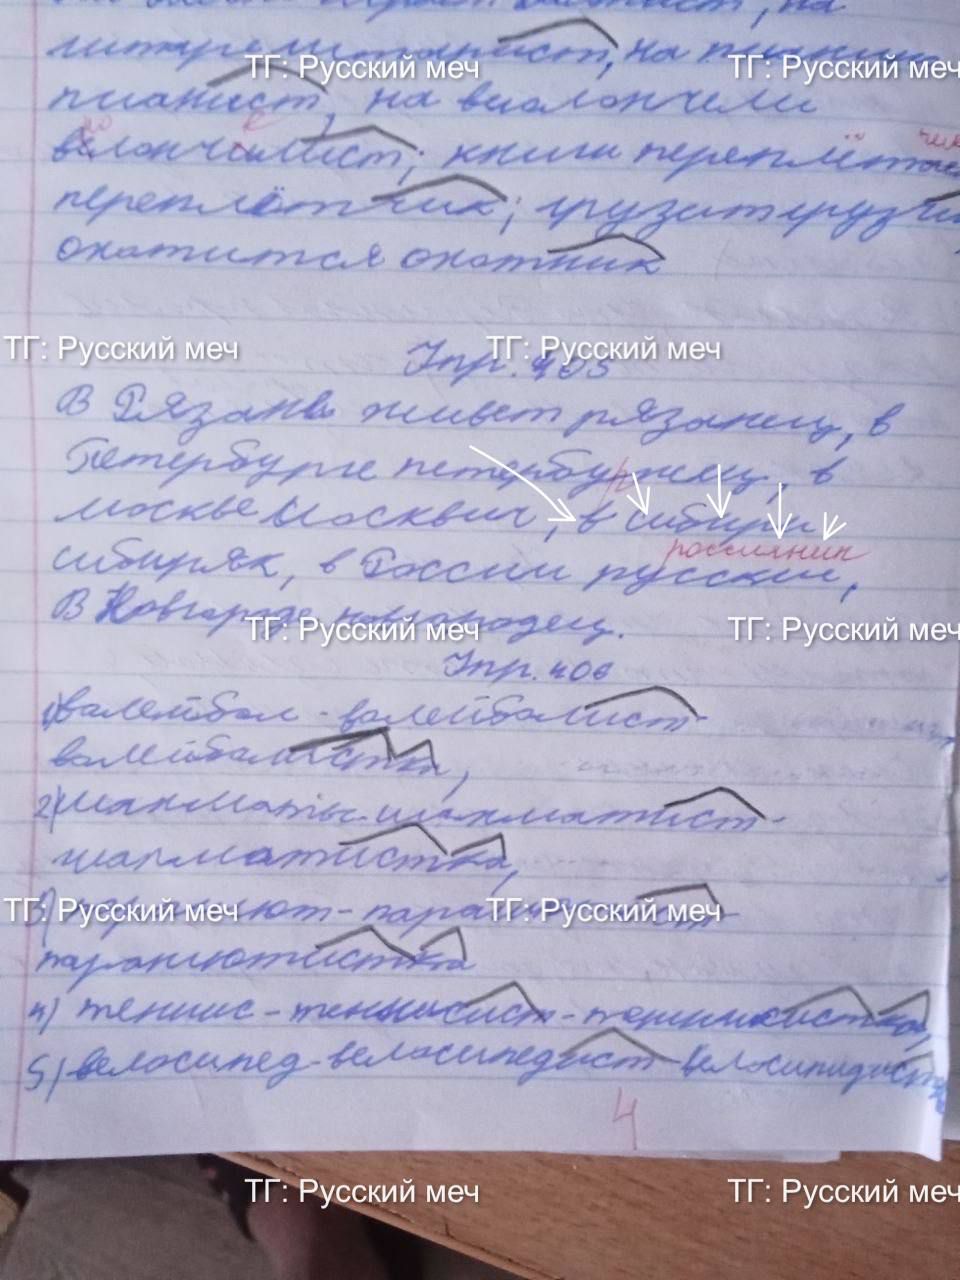 на
гитаре гитарист, на пианино
пианист, на виолончели
велончилист; книги переплёт
переплётчик; грузит грузчик
охотится охотник
Упр. 405
В Рязане живет рязанец, в
Петербурге петербуржец, в
москве москвич, в сибири
россиянин
сибиряк, в России русский,
В Новгороде новгородец.
Упр. 406
1) валейбол - валейболист-
валейболистка,
2) шахматы-шахматист-
шахматистка,
парашют-парашютист-
парашютистка
4) теннис-теннисист-теннисистка,
5) велосипед-велосипедист-велосипидистка
4
ТГ: Русский меч
ТГ: Русский меч
ТГ: Русский меч
ТГ: Русский меч
ТГ: Русский меч
ТГ: Русский меч
ТГ: Русский меч
ТГ: Русский меч
ТГ: Русский меч
ТГ: Русский меч